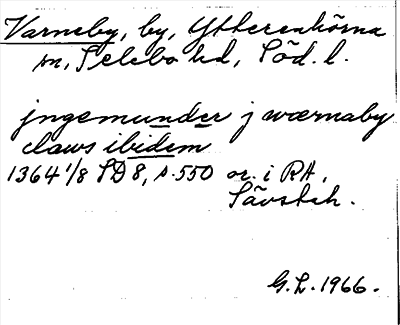 Varneby, by, Ytterenhörna
sn, Selebo hd, Söd. l.
jngemunder j wærnaby
claws ibidem
1364 1/8 SD 8, s. 550 or. i RA.
Sävsteh.
G.L. 1966.